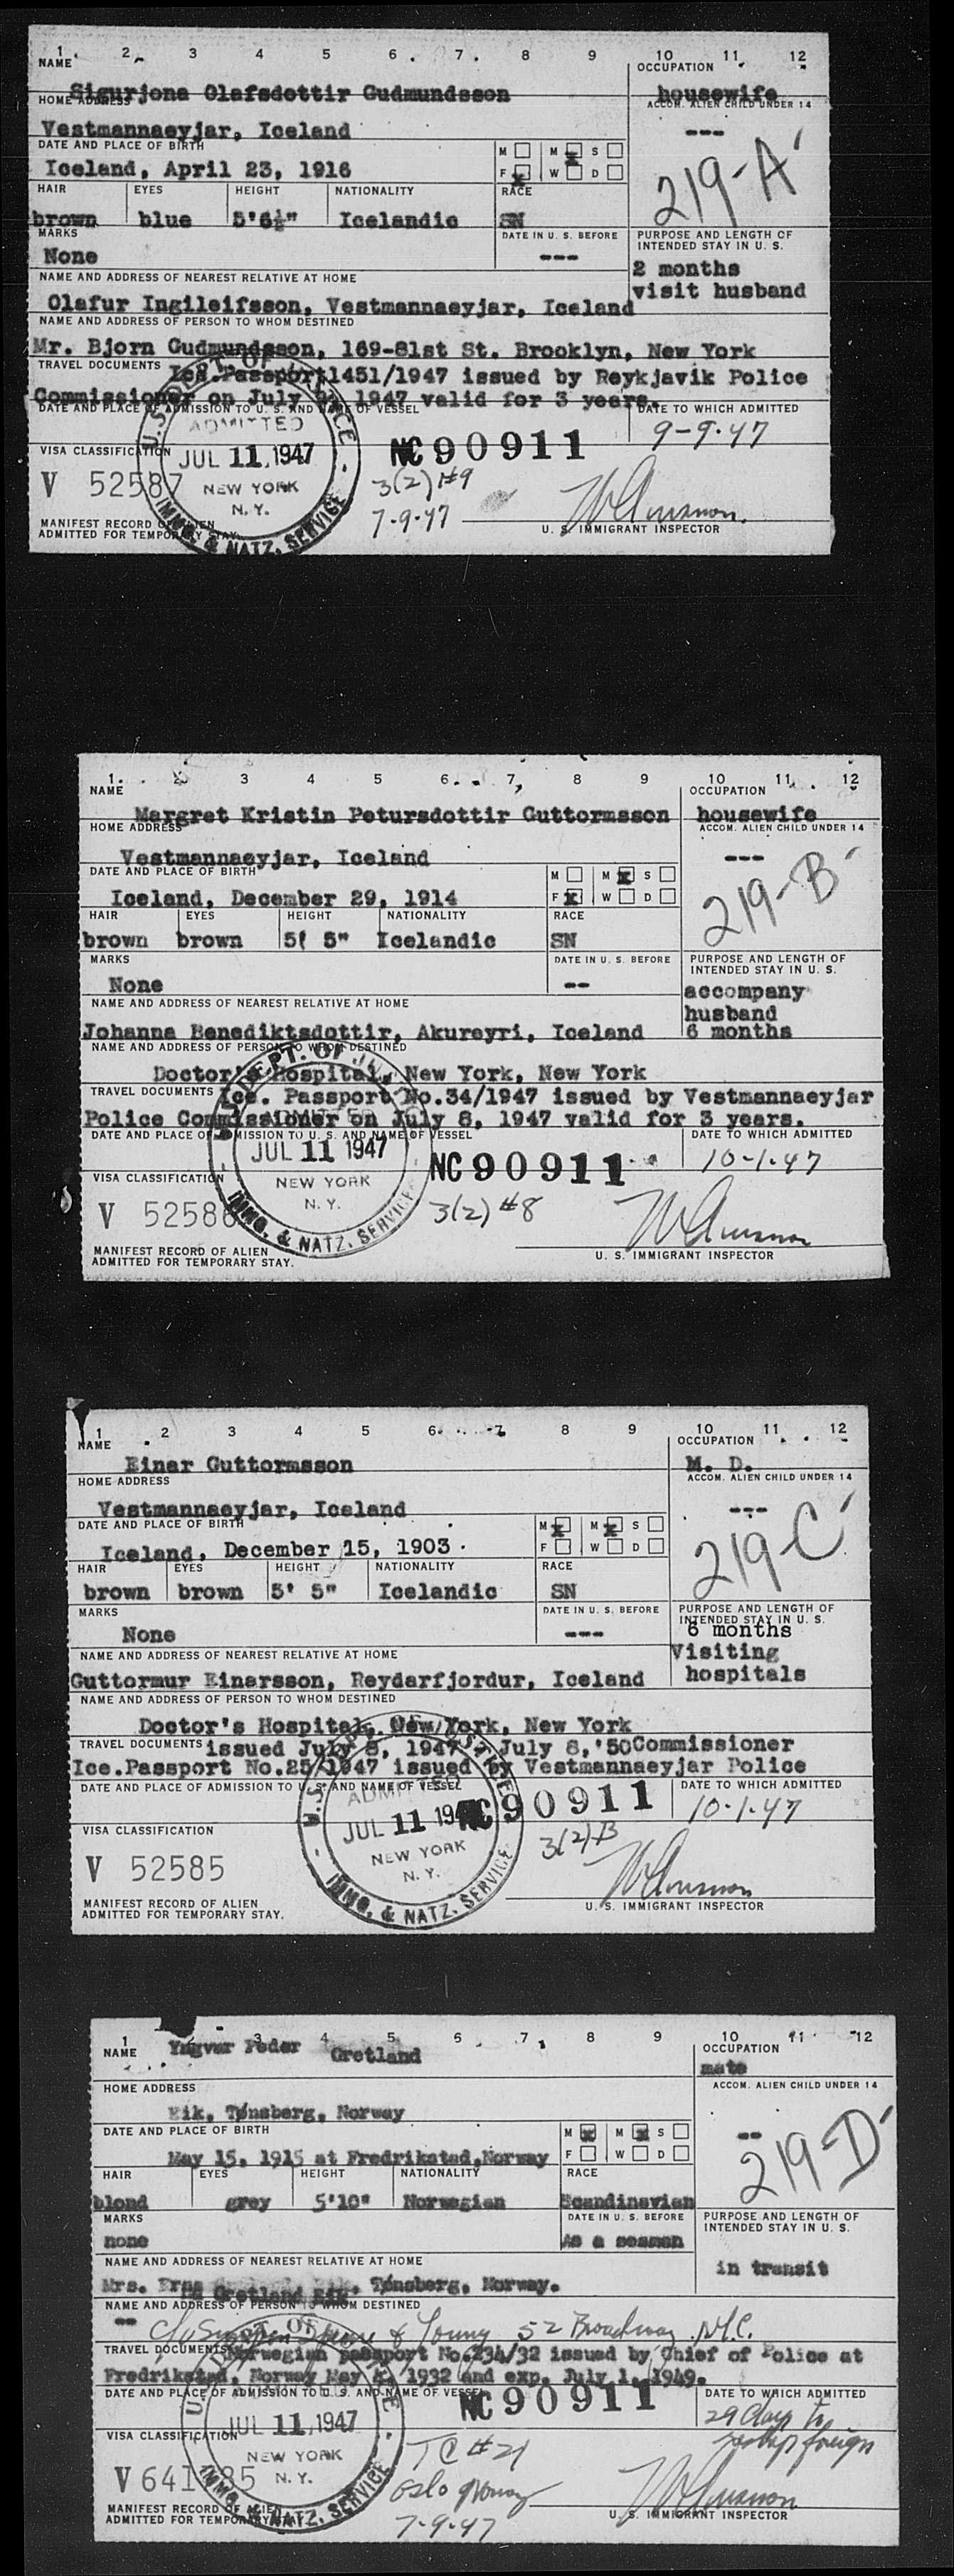 1 2 3 4 5 6 7 8 9 10 11 12
NAME OCCUPATION
Sigurjona Olafsdottir Gudmundsson housewife
HOME ADDRESS ACCOM. ALIEN CHILD UNDER 14
Vestmannaeyjar, Iceland ---
DATE AND PLACE OF BIRTH M M x S
Iceland, April 23, 1916 F x W D
219-A
HAIR EYES HEIGHT NATIONALITY RACE
brown blue 5'6½" Icelandic SN
MARKS DATE IN U. S. BEFORE PURPOSE AND LENGTH OF INTENDED STAY IN U. S.
None --- 2 months
NAME AND ADDRESS OF NEAREST RELATIVE AT HOME visit husband
Olafur Ingileifsson, Vestmannaeyjar, Iceland
NAME AND ADDRESS OF PERSON TO WHOM DESTINED
Mr. Bjorn Gudmundsson, 169-81st St. Brooklyn, New York
TRAVEL DOCUMENTS Ice.Passport 1451/1947 issued by Reykjavik Police
Commissioner on July 1947 valid for 3 years.
DATE AND PLACE OF ADMISSION TO U. S. AND NAME OF VESSEL DATE TO WHICH ADMITTED
ADMITTED 9-9-47
VISA CLASSIFICATION JUL 11, 1947 NC 90911
V 52587 NEW YORK 3(2) #9
N. Y. 7-9-47
IMMG. & NATZ. SERVICE
MANIFEST RECORD OF ALIEN U. S. IMMIGRANT INSPECTOR
ADMITTED FOR TEMPORARY STAY.
1 2 3 4 5 6 7 8 9 10 11 12
NAME OCCUPATION
Margret Kristin Petursdottir Guttormsson housewife
HOME ADDRESS ACCOM. ALIEN CHILD UNDER 14
Vestmannaeyjar, Iceland ---
DATE AND PLACE OF BIRTH M M x S
Iceland, December 29, 1914 F x W D
219-B
HAIR EYES HEIGHT NATIONALITY RACE
brown brown 5' 5" Icelandic SN
MARKS DATE IN U. S. BEFORE PURPOSE AND LENGTH OF INTENDED STAY IN U. S.
None -- accompany
NAME AND ADDRESS OF NEAREST RELATIVE AT HOME husband
Johanna Benediktsdottir, Akureyri, Iceland 6 months
NAME AND ADDRESS OF PERSON TO WHOM DESTINED
Doctor's Hospital, New York, New York
TRAVEL DOCUMENTS Ice. Passport No.34/1947 issued by Vestmannaeyjar
Police Commissioner on July 8, 1947 valid for 3 years.
DATE AND PLACE OF ADMISSION TO U. S. AND NAME OF VESSEL DATE TO WHICH ADMITTED
JUL 11 1947 NC 90911 10-1-47
VISA CLASSIFICATION NEW YORK
V 52586 N. Y. 3(2) #8
IMMG. & NATZ. SERVICE
MANIFEST RECORD OF ALIEN U. S. IMMIGRANT INSPECTOR
ADMITTED FOR TEMPORARY STAY.
1 2 3 4 5 6 7 8 9 10 11 12
NAME OCCUPATION
Einar Guttormsson M. D.
HOME ADDRESS ACCOM. ALIEN CHILD UNDER 14
Vestmannaeyjar, Iceland ---
DATE AND PLACE OF BIRTH M x M x S
Iceland, December 15, 1903 F W D
219-C
HAIR EYES HEIGHT NATIONALITY RACE
brown brown 5' 5" Icelandic SN
MARKS DATE IN U. S. BEFORE PURPOSE AND LENGTH OF INTENDED STAY IN U. S.
None --- 6 months
NAME AND ADDRESS OF NEAREST RELATIVE AT HOME Visiting
Guttormur Einarsson, Reydarfjordur, Iceland hospitals
NAME AND ADDRESS OF PERSON TO WHOM DESTINED
Doctor's Hospital, New York, New York
TRAVEL DOCUMENTS issued July 8, 1947 July 8, '50 Commissioner
Ice.Passport No.25/1947 issued by Vestmannaeyjar Police
DATE AND PLACE OF ADMISSION TO U. S. AND NAME OF VESSEL DATE TO WHICH ADMITTED
ADMITTED JUL 11 194 NC 90911 10-1-47
VISA CLASSIFICATION NEW YORK 3(2)-B
V 52585 N. Y.
IMMG. & NATZ. SERVICE
MANIFEST RECORD OF ALIEN U. S. IMMIGRANT INSPECTOR
ADMITTED FOR TEMPORARY STAY.
1 3 4 5 6 7 8 9 10 11 12
NAME Yngvar Peder Gretland OCCUPATION
mate
HOME ADDRESS ACCOM. ALIEN CHILD UNDER 14
Eik, Tønsberg, Norway --
DATE AND PLACE OF BIRTH M x M x S
May 15, 1915 at Fredrikstad,Norway F W D
219-D
HAIR EYES HEIGHT NATIONALITY RACE
blond grey 5'10" Norwegian Scandinavian
MARKS DATE IN U. S. BEFORE PURPOSE AND LENGTH OF INTENDED STAY IN U. S.
none As a seaman
NAME AND ADDRESS OF NEAREST RELATIVE AT HOME in transit
Mrs. Erna Gretland Eik, Tønsberg, Norway.
NAME AND ADDRESS OF PERSON TO WHOM DESTINED
-- & Young 52 Broadway N.Y.C.
TRAVEL DOCUMENTS Norwegian passport No.234/32 issued by Chief of Police at
Fredrikstad, Norway May 1932 and exp. July 1, 1949.
DATE AND PLACE OF ADMISSION TO U. S. AND NAME OF VESSEL DATE TO WHICH ADMITTED
JUL 11, 1947 NC 90911 29 days to
VISA CLASSIFICATION NEW YORK reship foreign
V 641 85 N. Y. TC #21
Oslo Norway
IMMG. & NATZ. SERVICE 7-9-47
MANIFEST RECORD OF ALIEN U. S. IMMIGRANT INSPECTOR
ADMITTED FOR TEMPORARY STAY.